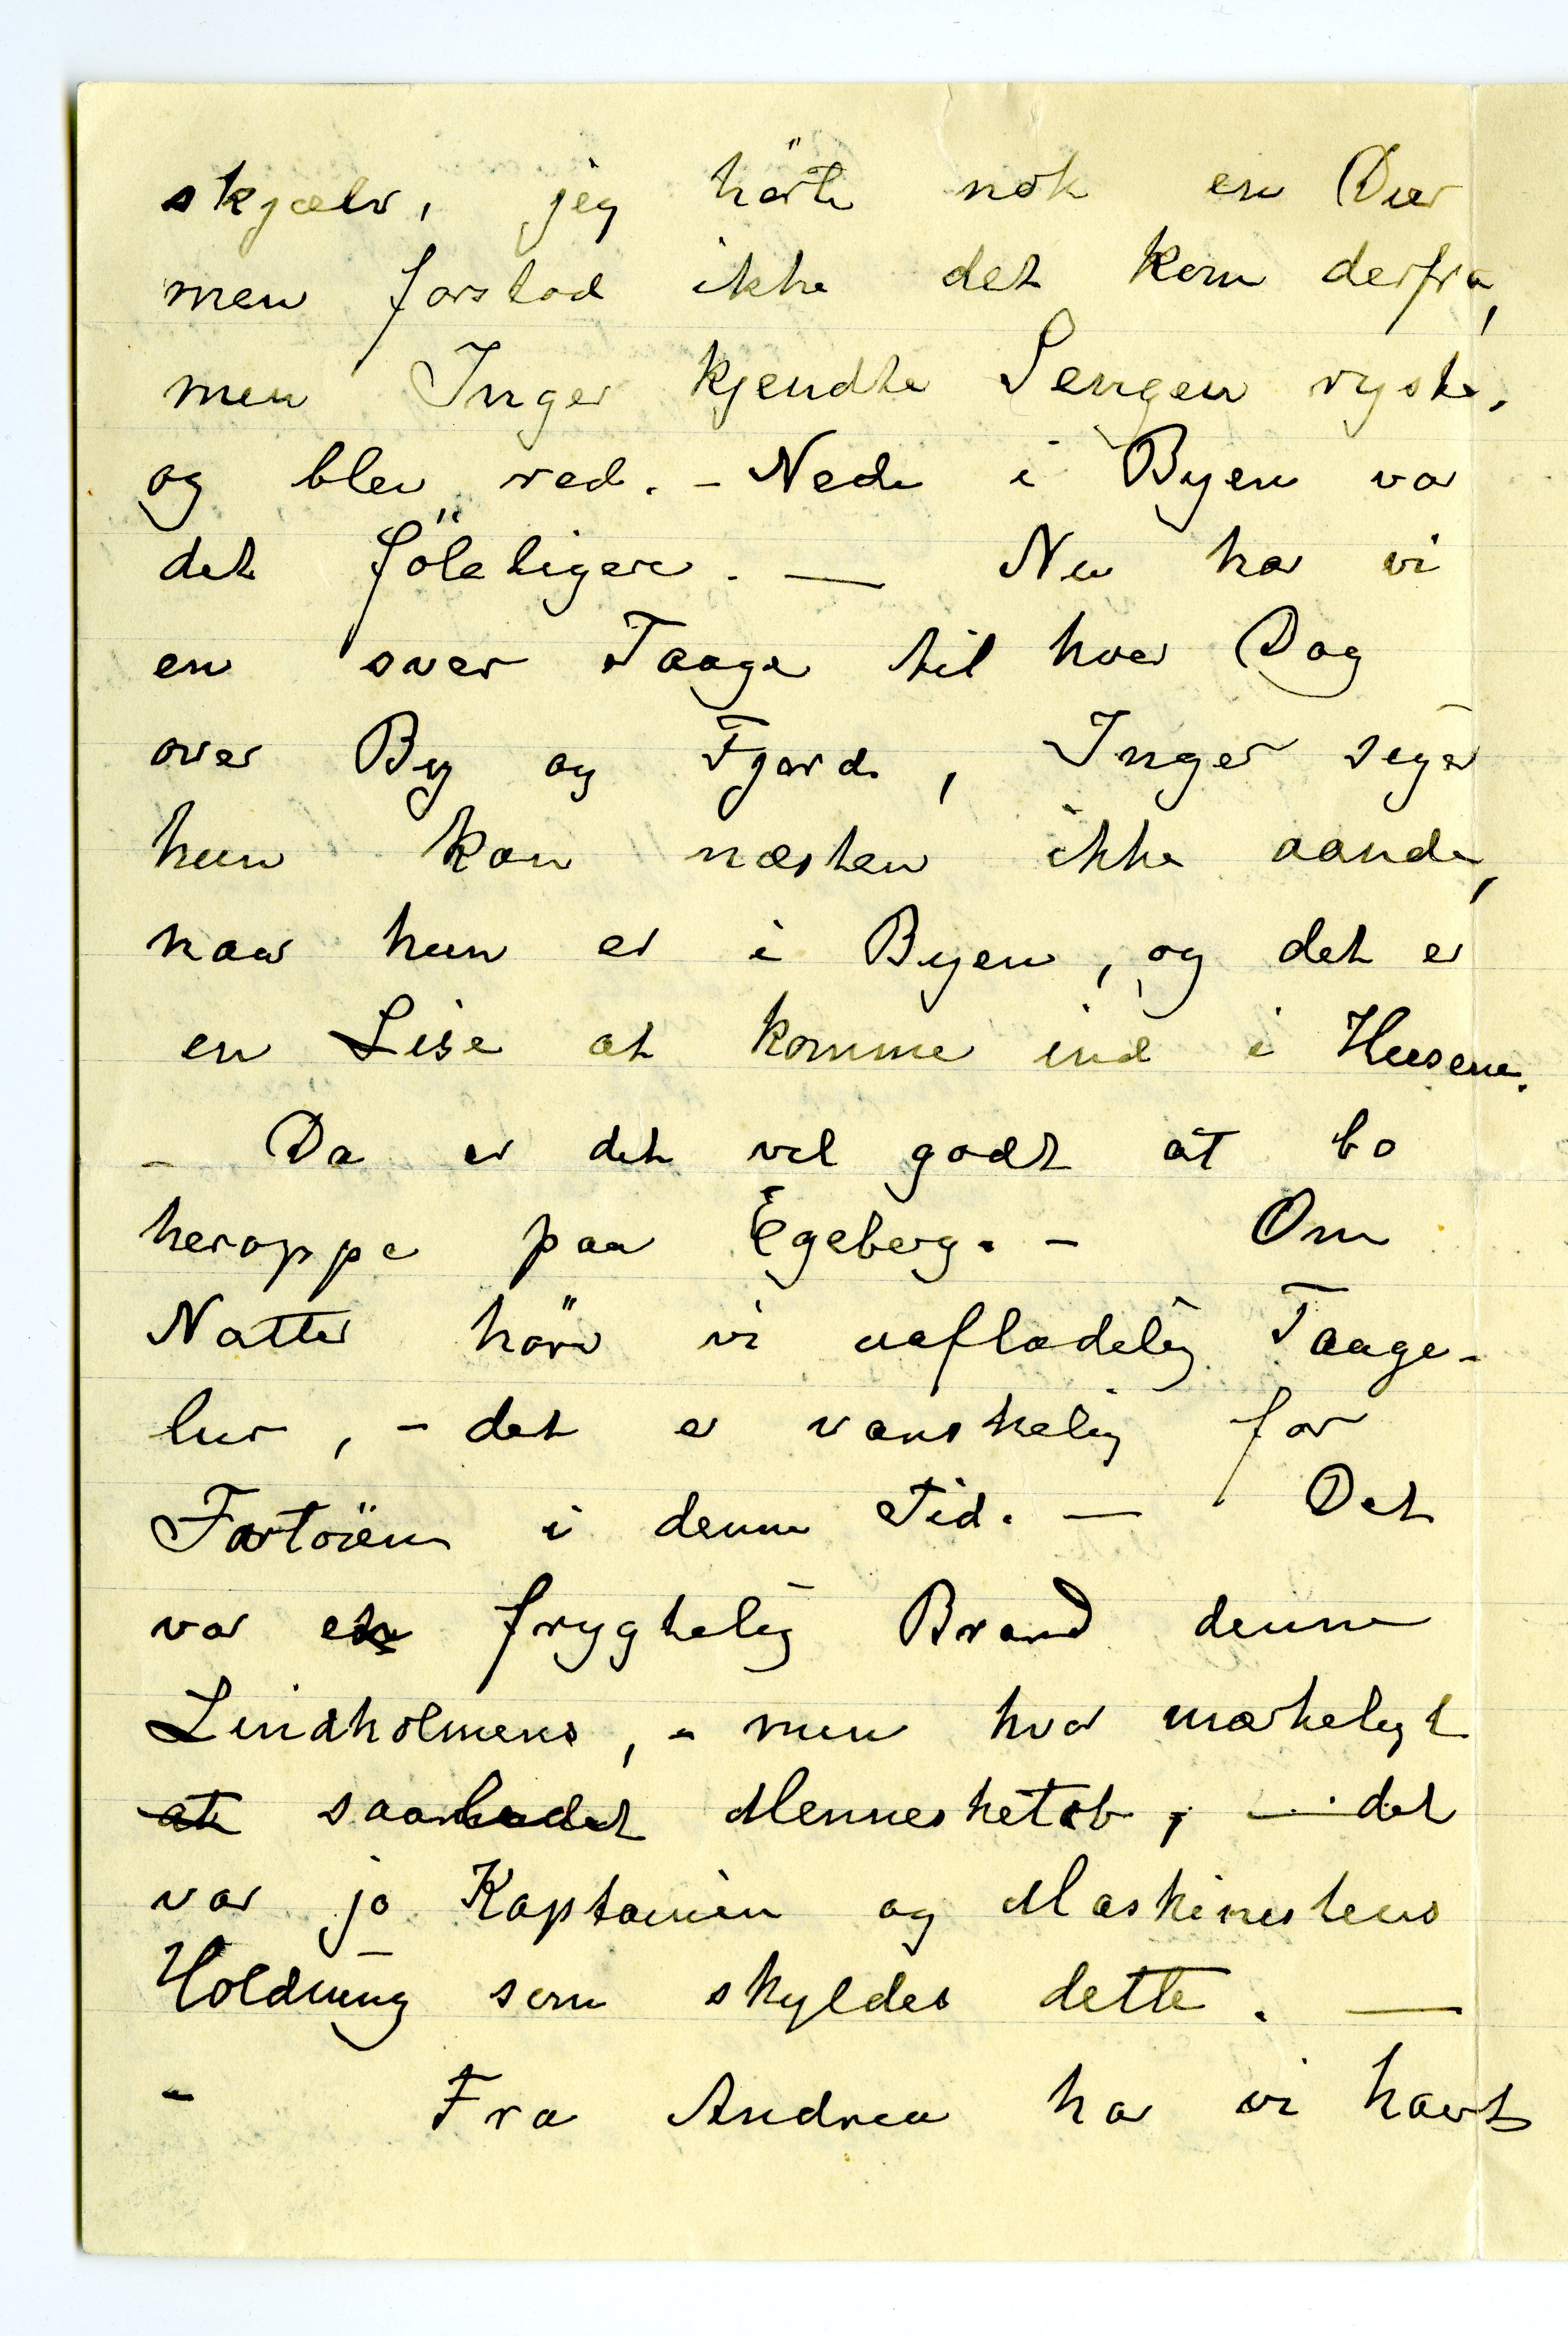 skjælv, jeg hørte nok en Dur
men forstod ikke det kom derfra,
men Inger kjendte Sengen ryste,
og blev ræd. – Nede i Byen var
det föleligere. — Nu har vi
en svær Taage til hver Dag
over By og Fjord, Inger siger
hun kan næsten ikke aande,
naar hun er i Byen, og det er
en Lise at komme ind i Husene.
– Da er det vel godt at bo
heroppe paa Egeberg. – Om
Natten hörer vi uafladelig Taage-
lur, – det er vanskelig for
Fartöien i denne Tid. — Det
var en frygtelig Brand denne
Lindholmens, – men hvor mærkeligt
at saa Mennesketab, — det
var jo Kaptainen og Maskinistens
Holdning som skyldes dette. —
– Fra Andrea har vi havt